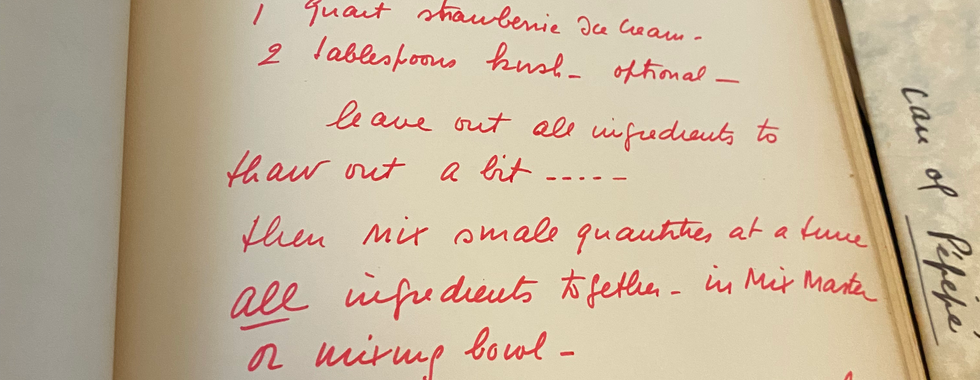 1 quart strawberrie Ice Cream -
2 tablespoons kirsh - optional -
leave out all ingredients to
thaw out a bit -----
then Mix small quantities at a time
all ingredients together - in Mix Master
or mixing bowl -
can of Pépépé